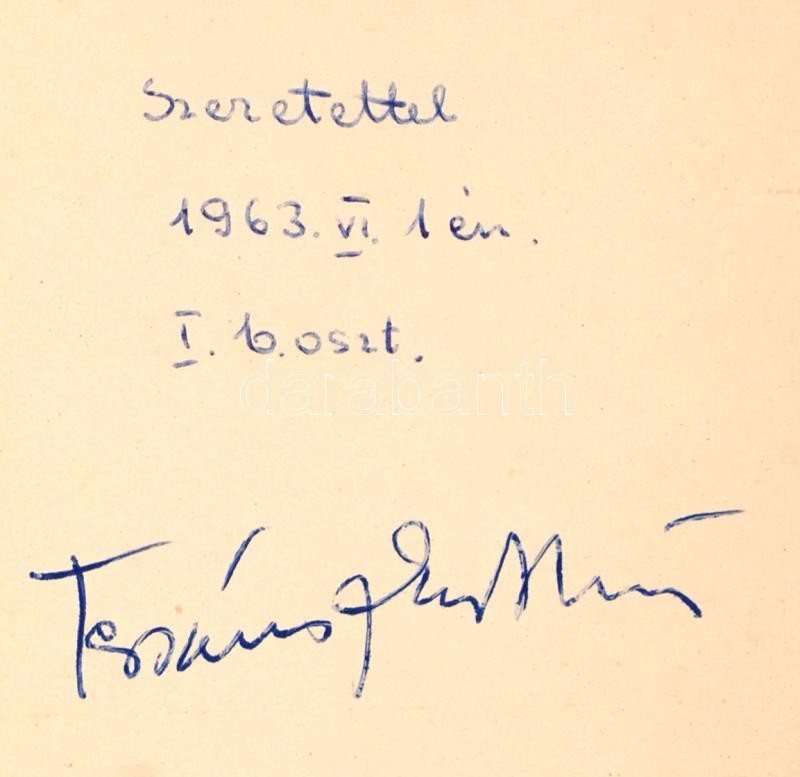 Szeretettel
1963. VI. 1én.
I. b. oszt.
darabanth
Tersánszky